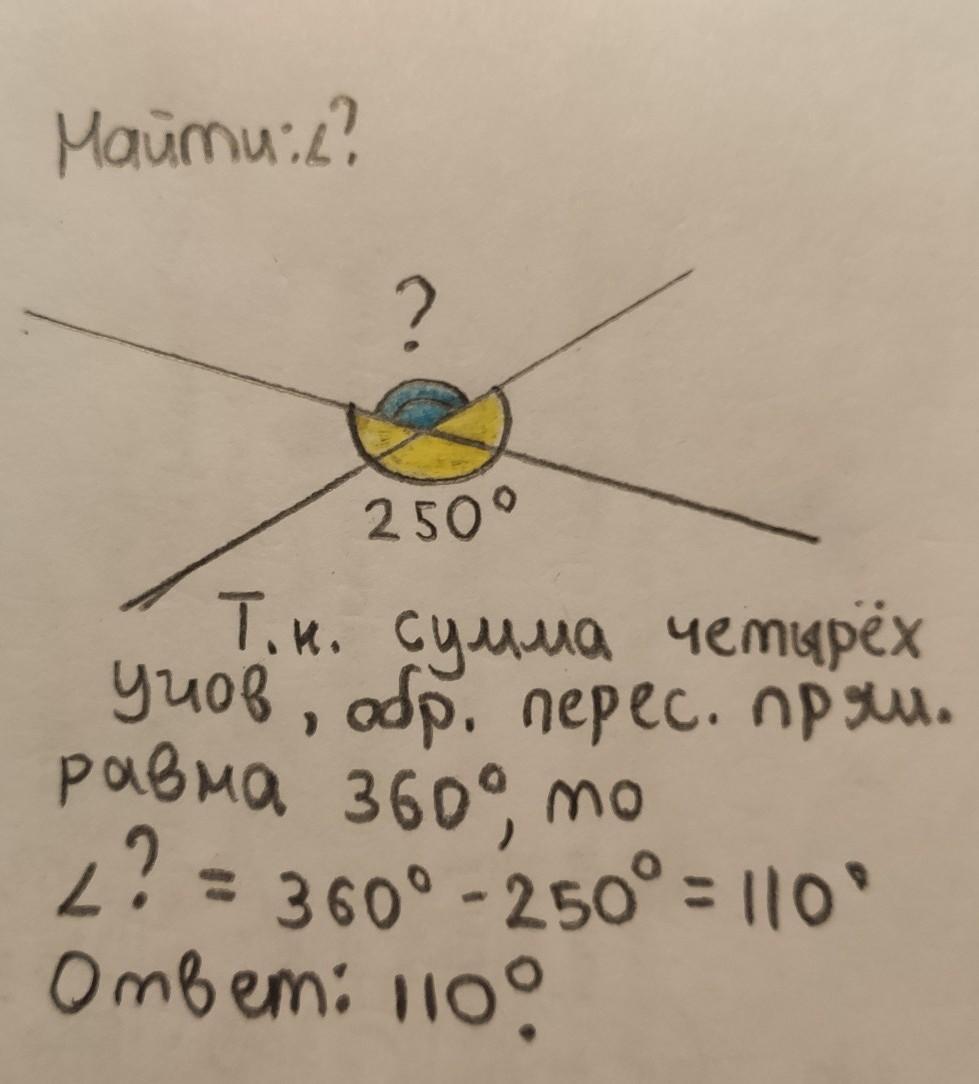 Найти:∠?
?
250°
Т.к. сумма четырёх
углов, обр. перес. прям.
равна 360°, то
∠? = 360° - 250° = 110°
Ответ: 110°.